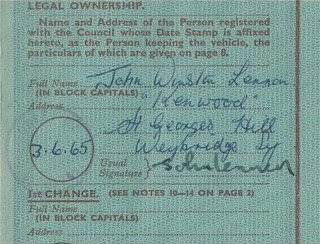 LEGAL OWNERSHIP.
Name and Address of the Person registered
with the Council whose Date Stamp is affixed
hereto, as the Person keeping the vehicle, the
particulars of which are given on page 8.
Full Name John Winston Lennon
(IN BLOCK CAPITALS)
Address "Kenwood"
St Georges Hill
3.6.65 Weybridge Sy
Usual
Signature
1st CHANGE. (SEE NOTES 10—14 ON PAGE 2)
Full Name
(IN BLOCK CAPITALS)
Address